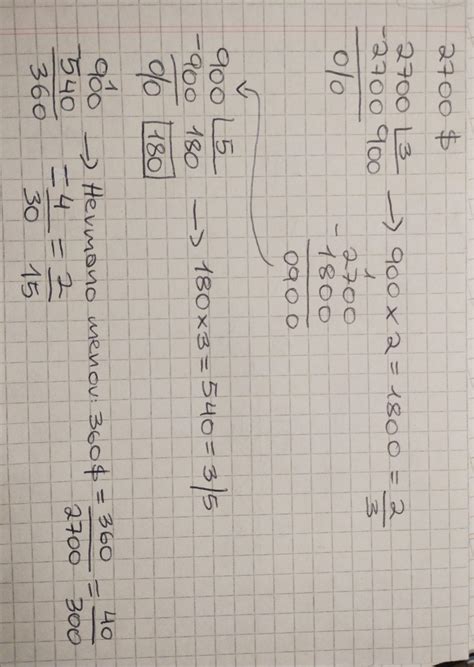 2700 $
2700 |3 → 900 × 2 = 1800 = 2/3
-2700 900
0/0
2700
- 1
1800
0900
900 |5
-900 180 → 180 × 3 = 540 = 3/5
0/0 180
900 → Hermano menor: 360$ = 360/2700 = 40/300
1
-540 = 4/30 = 2/15
360